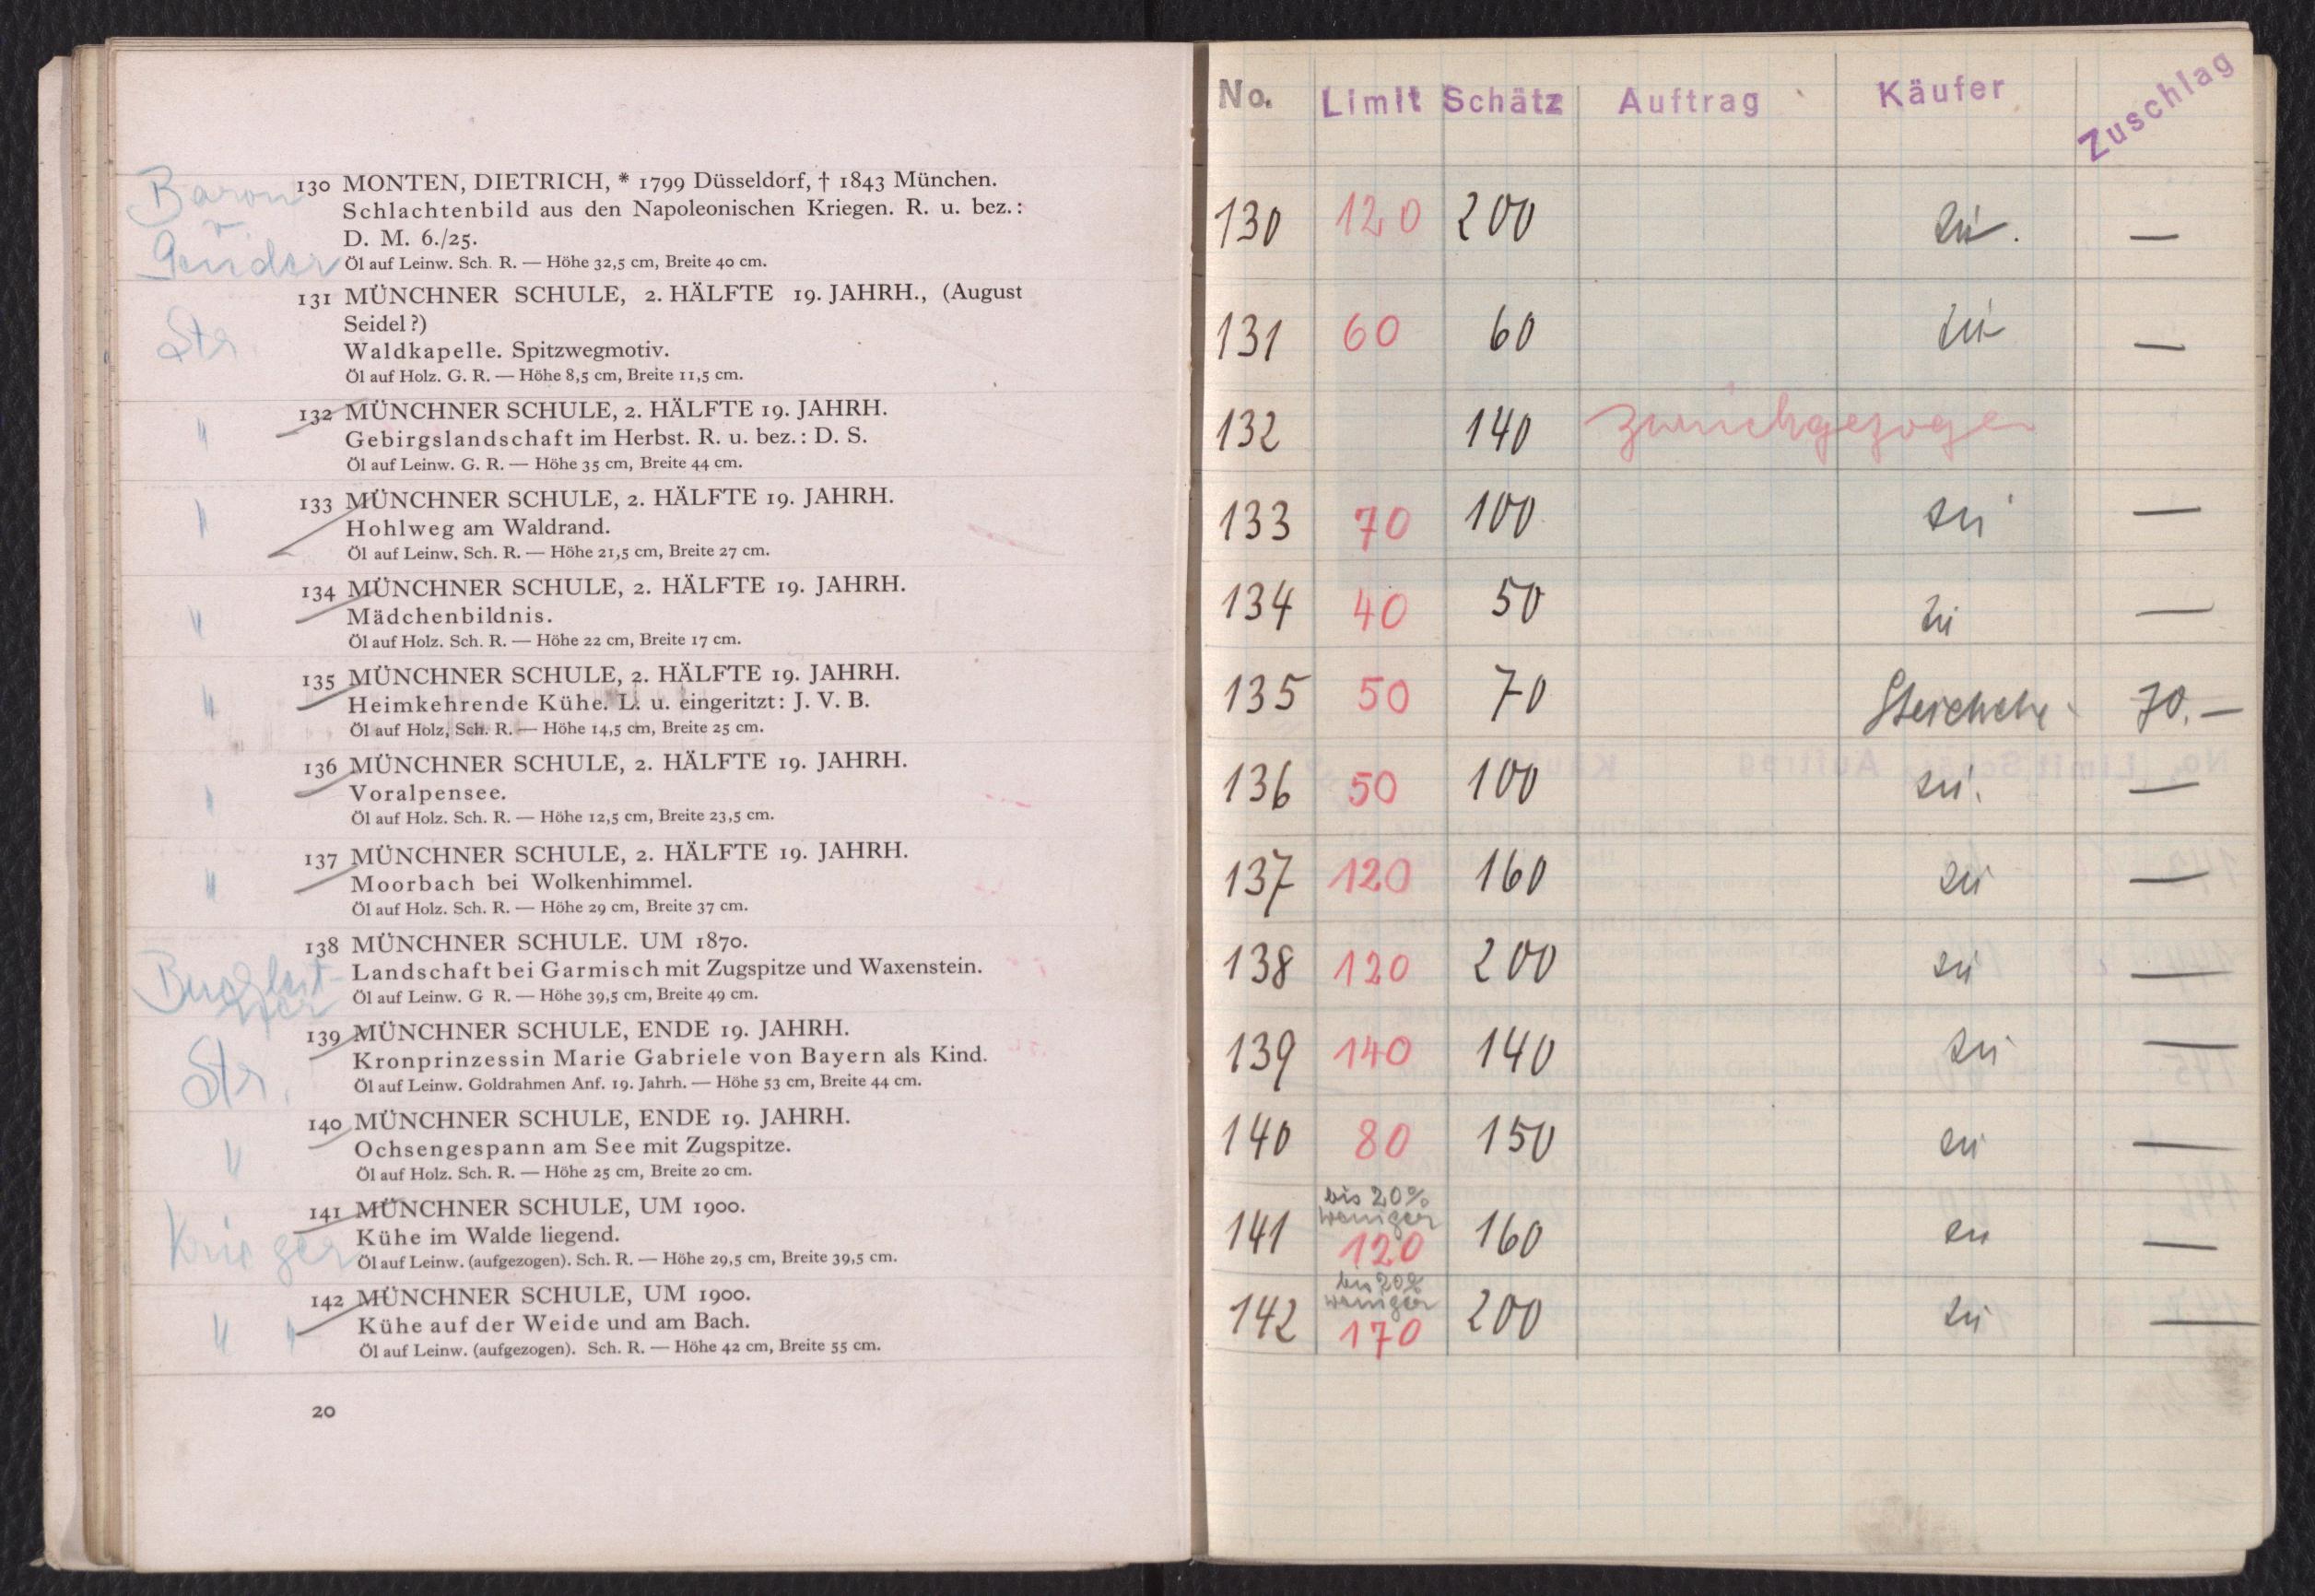 130 MONTEN, DIETRICH, * 1799 Düsseldorf, † 1843 München.
Schlachtenbild aus den Napoleonischen Kriegen. R. u. bez.:
D. M. 6./25.
Öl auf Leinw. Sch. R. — Höhe 32,5 cm, Breite 40 cm.
Baron
v.
131 MÜNCHNER SCHULE, 2. HÄLFTE 19. JAHRH., (August
Seidel?)
Waldkapelle. Spitzwegmotiv.
Öl auf Holz. G. R. — Höhe 8,5 cm, Breite 11,5 cm.
Str.
132 MÜNCHNER SCHULE, 2. HÄLFTE 19. JAHRH.
Gebirgslandschaft im Herbst. R. u. bez.: D. S.
Öl auf Leinw. G. R. — Höhe 35 cm, Breite 44 cm.
"
133 MÜNCHNER SCHULE, 2. HÄLFTE 19. JAHRH.
Hohlweg am Waldrand.
Öl auf Leinw. Sch. R. — Höhe 21,5 cm, Breite 27 cm.
"
134 MÜNCHNER SCHULE, 2. HÄLFTE 19. JAHRH.
Mädchenbildnis.
Öl auf Holz. Sch. R. — Höhe 22 cm, Breite 17 cm.
"
135 MÜNCHNER SCHULE, 2. HÄLFTE 19. JAHRH.
Heimkehrende Kühe. L. u. eingeritzt: J. V. B.
Öl auf Holz, Sch. R. — Höhe 14,5 cm, Breite 25 cm.
"
136 MÜNCHNER SCHULE, 2. HÄLFTE 19. JAHRH.
Voralpensee.
Öl auf Holz. Sch. R. — Höhe 12,5 cm, Breite 23,5 cm.
"
137 MÜNCHNER SCHULE, 2. HÄLFTE 19. JAHRH.
Moorbach bei Wolkenhimmel.
Öl auf Holz. Sch. R. — Höhe 29 cm, Breite 37 cm.
"
138 MÜNCHNER SCHULE. UM 1870.
Landschaft bei Garmisch mit Zugspitze und Waxenstein.
Öl auf Leinw. G R. — Höhe 39,5 cm, Breite 49 cm.
139 MÜNCHNER SCHULE, ENDE 19. JAHRH.
Kronprinzessin Marie Gabriele von Bayern als Kind.
Öl auf Leinw. Goldrahmen Anf. 19. Jahrh. — Höhe 53 cm, Breite 44 cm.
Str.
140 MÜNCHNER SCHULE, ENDE 19. JAHRH.
Ochsengespann am See mit Zugspitze.
Öl auf Holz. Sch. R. — Höhe 25 cm, Breite 20 cm.
"
141 MÜNCHNER SCHULE, UM 1900.
Kühe im Walde liegend.
Öl auf Leinw. (aufgezogen). Sch. R. — Höhe 29,5 cm, Breite 39,5 cm.
Krieger
142 MÜNCHNER SCHULE, UM 1900.
Kühe auf der Weide und am Bach.
Öl auf Leinw. (aufgezogen). Sch. R. — Höhe 42 cm, Breite 55 cm.
" "
20
No. Limit Schätz Auftrag Käufer Zuschlag
130 120 200 zü. —
131 60 60 zü —
132 140 zurückgezogen
133 70 100 zü —
134 40 50 zü —
135 50 70 70.—
136 50 100 zü. —
137 120 160 zü —
138 120 200 zü —
139 140 140 zü —
140 80 150 zü —
bis 20%
weniger
141 120 160 zü —
bis 20%
weniger
142 170 200 zü —